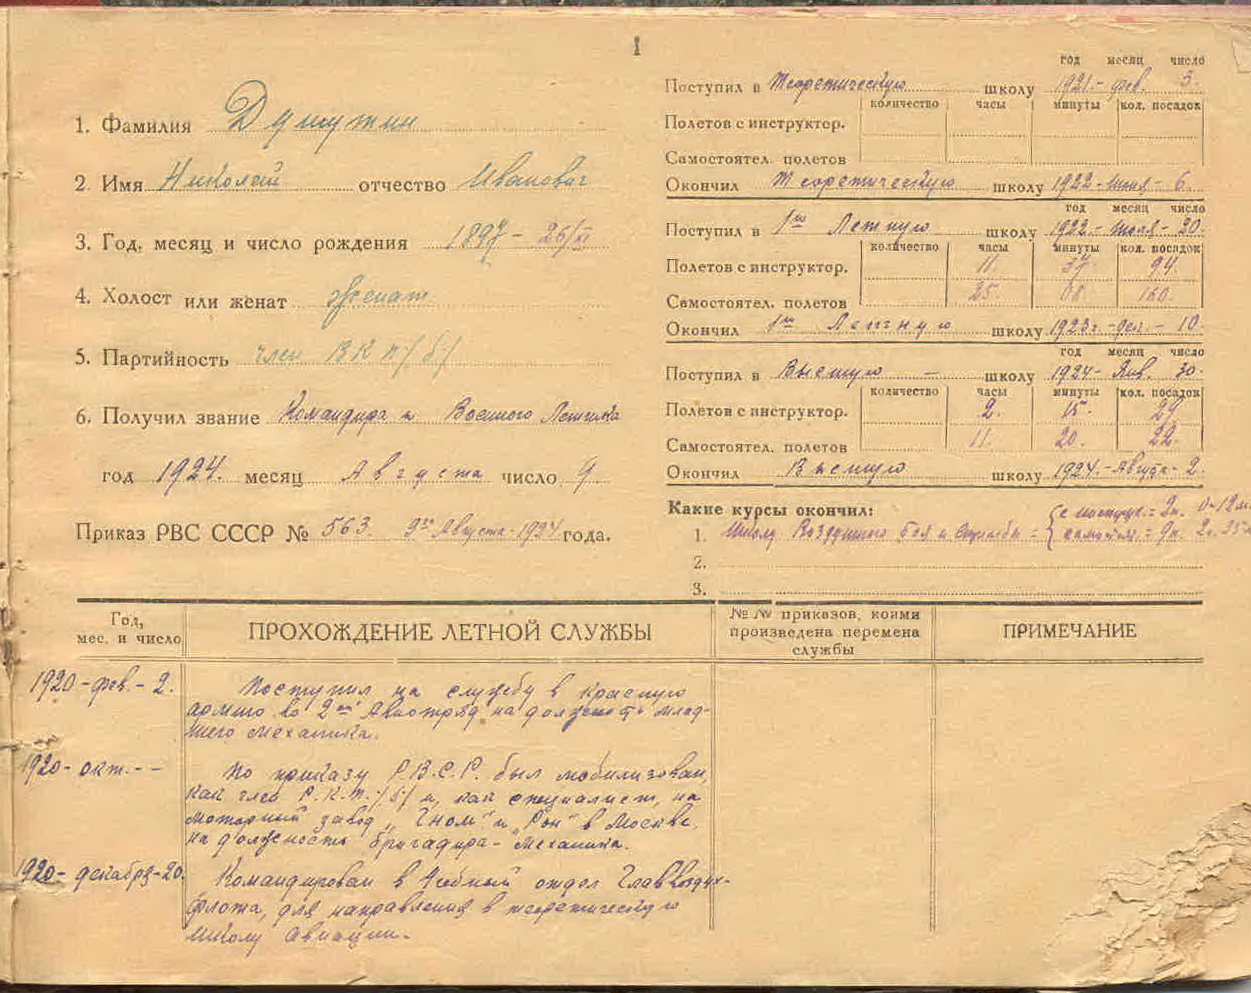 I
1. Фамилия Душутин
2. Имя Николай отчество Иванович
3. Год, месяц и число рождения 1897 - 26/XI
4. Холост или женат женат
5. Партийность член ВКП/б/
6. Получил звание Командира и Военного Летчика
год 1924. месяц Августа число 9.
Приказ РВС СССР № 563. 9го Августа - 1924 года.
год месяц число
Поступил в Теоретическую школу 1921 - фев. 3.
количество часы минуты кол. посадок
Полетов с инструктор.
Самостоятел. полетов
Окончил Теоретическую школу 1922 - июня - 6.
год месяц число
Поступил в 1ю Летную школу 1922 - июля - 20.
количество часы минуты кол. посадок
Полетов с инструктор. 11. 37. 94.
Самостоятел. полетов 25. 08. 160.
Окончил 1ю Летную школу 1923г. - дек. - 10.
год месяц число
Поступил в Высшую — школу 1924 - Янв. 30.
количество часы минуты кол. посадок
Полетов с инструктор. 2. 15. 29.
Самостоятел. полетов 11. 20. 22.
Окончил Высшую школу 1924. - Августа - 2.
Какие курсы окончил:
1. Школу Воздушного боя и стрельбы =
2.
3.
Год, мес. и число
ПРОХОЖДЕНИЕ ЛЕТНОЙ СЛУЖБЫ
№ №№ приказов, коими произведена перемена службы
ПРИМЕЧАНИЕ
1920 - фев. - 2. Поступил на службу в красную
армию во 2ой Авиотряд на должность млад-
шего механика.
1920 - окт. - - По приказу Р.В.С.Р. был мобилизован,
как член Р.К.П./б/ и, как специалист, на
моторный завод „Гном" и „Рон" в Москве,
на должность бригадира - механика.
1920 - декабря - 20. Командирован в Учебный отдел Главвоздух-
флота, для направления в теоретическую
школу Авиации.